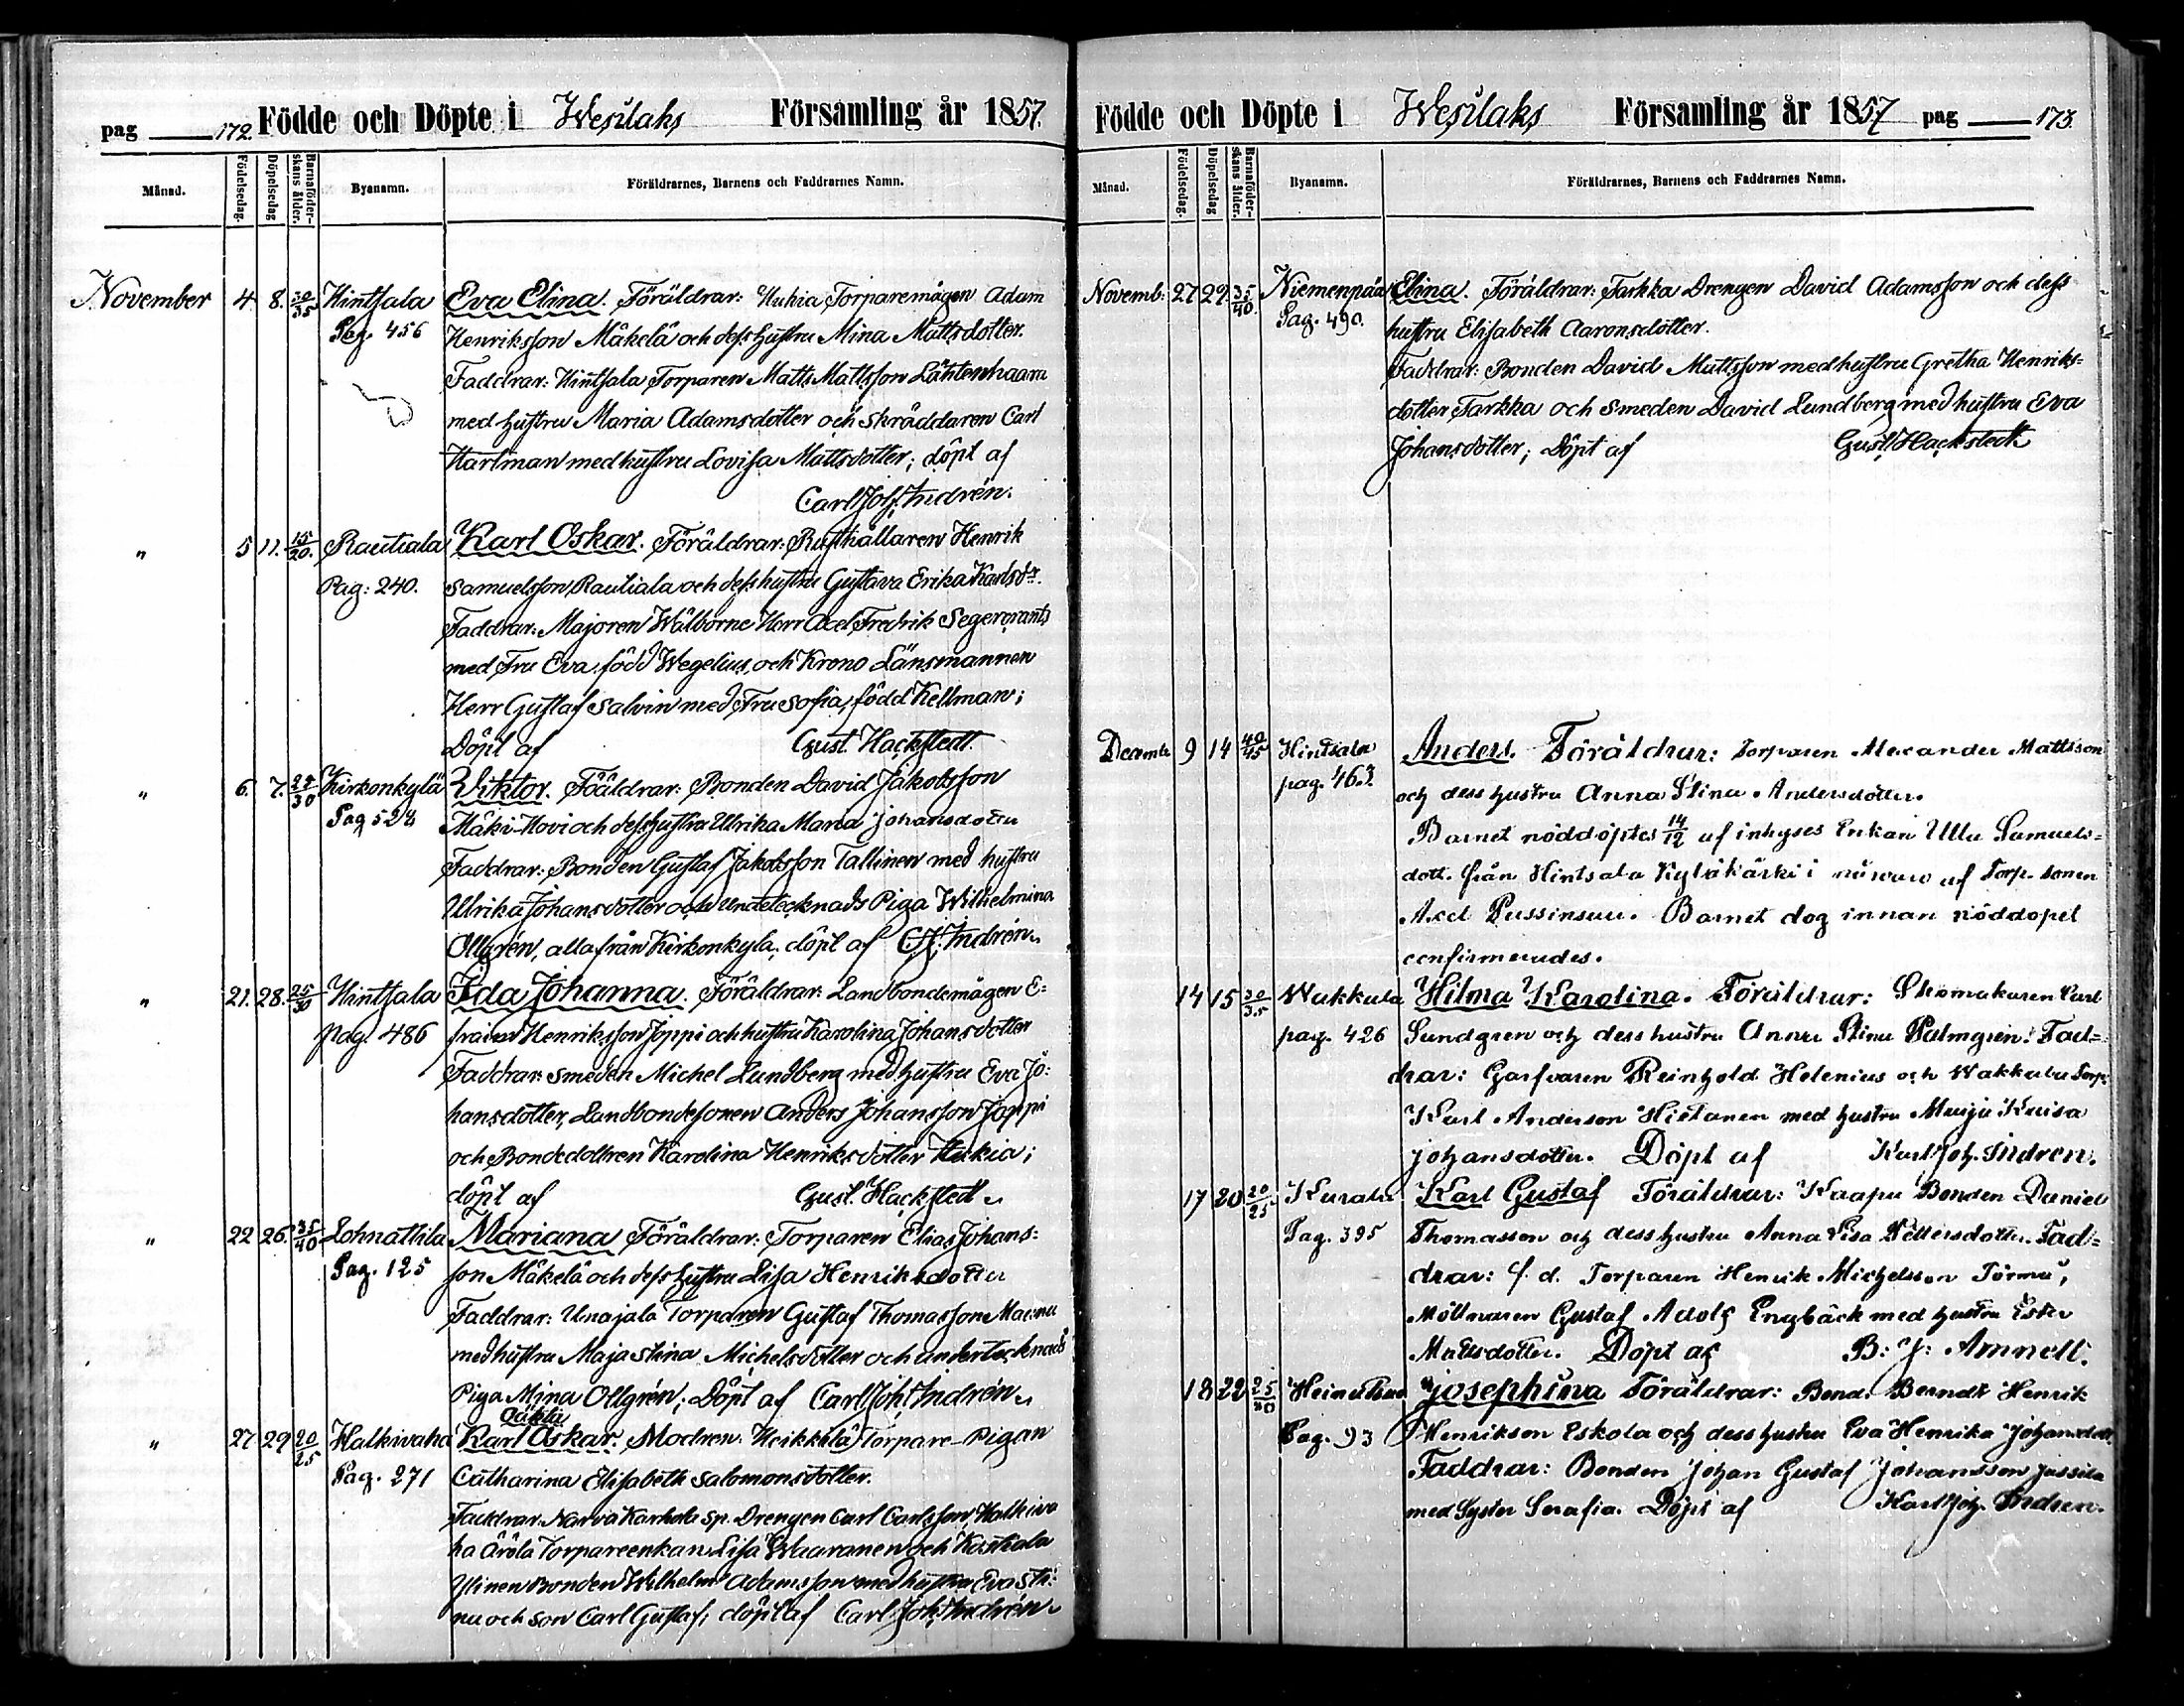 pag 172. Födde och Döpte i Wesilahs Församling år 1857.
Månad. Födelsedag. Döpelsedag Barnaföderskans ålder. Byanamn. Föräldrarnes, Barnens och Faddrarnes Namn.
November 4 8. 30/35 Hintsala Eva Elina. Föräldrar: Hukia Torparemågen Adam
Pag. 456 Henriksson Mäkelä och dess hustru Mina Mattsdotter.
Faddrar: Hintsala Torparen Matts Mattsson Lähtenhaara
med hustru Maria Adamsdotter och skräddaren Carl
Hartman med hustru Lovisa Mattsdotter; döpt af
Carl Joh. Indrén.
" 5 11. 15/20. Rautiala Karl Oskar. Föräldrar: Rusthållaren Henrik
Pag: 240. Samuelsson Rautiala och dess hustru Gustava Erika Karlsdr.
Faddrar: Majoren Wälborne Herr Axel Fredrik Segercrants
med Fru Eva, född Wegelius, och Krono Länsmannen
Herr Gustaf Salvin med Fru Sofia, född Kellman;
Döpt af Gust. Hackstedt.
" 6. 7. 30 Kirkonkylä Viktor. Föäldrar: Bonden David Jakobsson
Pag 528 Mäki-Hovi och dess hustru Ulrika Maria Johansdotter
Faddrar: Bonden Gustaf Jakobsson Tallinen med hustru
Ulrika Johansdotter och undetecknads Piga Wilhelmina
Ollgrén, alla från Kirkonkyla; döpt af C.J. Indrén.
" 21. 28. 25/30 Hintsala Ida Johanna. Föräldrar: Landbondemågen E:
pag. 486 fraim Henriksson Joppi och hustru Karolina Johansdotter
Faddrar: smeden Michel Lundberg med hustru Eva Jo:
hansdotter, Landbondesonen Anders Johansson Joppi
och Bondedottren Karolina Henriksdotter Hukia;
döpt af Gust. Hackstedt.
" 22 26. 35/40 Lohnattila Mariana Föräldrar: Torparen Elias Johans:
Pag. 125 son Mäkelä och dess hustru Lisa Henriksdotter
Faddrar: Unajala Torparen Gustaf Thomasson
med hustru Maja Stina Michelsdotter och undertecknads
Piga Mina Ollgrén; Döpt af Carl Joh. Indrén.
oäkta
" 27 29 20/25 Halkivaha Karl Oskar. Modren: Heikkilä Torpare-Pigan
Pag. 271 Catharina Elisabeth Salomonsdotter.
Faddrar: Narva Karhola sp. Drengen Carl Carlsson, Halkiva
ha Torpareenkan Lisa Waaranen och Kostiala
Ylinen Bonden Wilhelm Adamsson med hustru Eva Sti:
na och son Carl Gustaf; döpt af Carl Joh. Indrén.
Födde och Döpte i Wesilaks Församling år 1857 pag 173.
Månad. Födelsedag. Döpelsedag Barnaföderskans ålder. Byanamn. Föräldrarnes, Barnens och Faddrarnes Namn.
Novemb: 27 29. 35/40. Niemenpää Elina. Föräldrar: Tarkka Drengen David Adamsson och dess
Pag. 490. hustru Elisabeth Aaronsdotter.
Faddrar: Bonden David Mattsson med hustru Gretha Henriks=
dotter Tarkka och Smeden David Lundberg med hustru Eva
Johansdotter; Döpt af Gust. Hackstedt
Decemb. 9 14 40/45 Hintsala Anders. Föräldrar: Torparen Alexander Mattsson
pag. 463. och dess hustru Anna Stina Andersdotter.
Barnet nöddöptes 14/12 af inhyses Enkan Ulla Samuels=
dott. från Hintsala Kyläkärki i närvaro af Torp. sonen
Axel Pussinsuu. Barnet dog innan nöddopet
confirmerades.
14 15 30/35 Wakkala Hilma Karolina. Föräldrar: Skomakaren Carl
pag. 426 Sundgren och dess hustru Anna Stina Palmgren. Fad=
drar: Garfvaren Reinhold Helenius och Wakkala Torp.
Karl Anderson Hietanen med hustru Maija Kaisa
johansdotter. Döpt af Karl Joh. Indren.
17 20 20/25 Kurala Karl Gustaf Föräldrar: Kaapu Bonden Daniel
Pag. 395 Thomasson och dess hustru Anna Lisa Pettersdotter. Fad=
drar: f. d. Torparen Henrik Michelsson Törmä,
Möllnaren Gustaf Adolf Engbäck med hustru Ester
Mattsdotter. Döpt af B: J: Amnell.
18 22 25/ Josephina Föräldrar: Bond. Berndt Henrik
Pag. 93 Henrikson Eskola och dess hustru Eva Henrika Johansdott.
Faddrar: Bonden Johan Gustaf Johansson Jussila
med Syster Serafia. Döpt af Karl Joh. Indren.